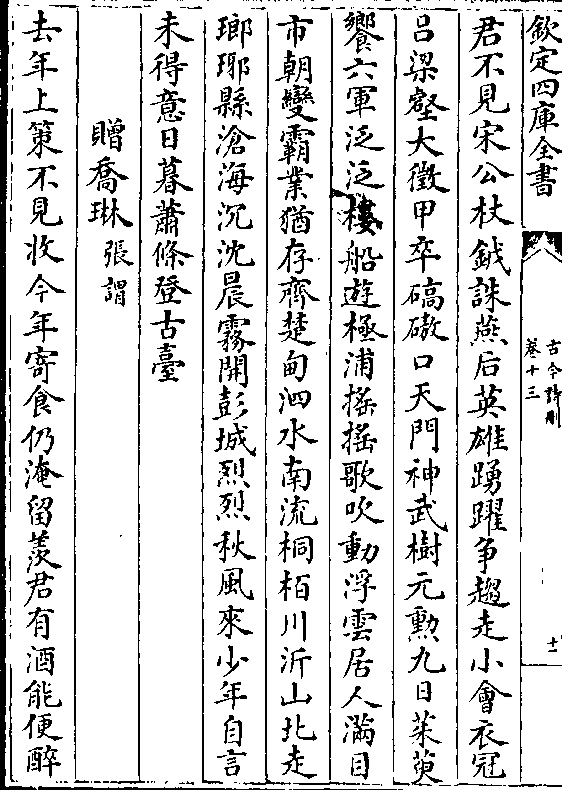 欽定四庫全書
古今詩刪
卷十三
十二
君不見宋公杖鉞誅燕后英雄踴躍爭趨走小會衣冠
呂梁壑大徵甲卒碻磝口天門神武樹元勲九日茱萸
饗六軍泛泛樓船遊極浦搖搖歌吹動浮雲居人滿目
市朝變霸業猶存齊楚甸泗水南流桐栢川沂山北走
瑯琊縣滄海沉沈晨霧開彭城烈烈秋風來少年自言
未得意日暮蕭條登古臺
贈喬琳 張謂
去年上策不見收今年寄食仍淹留羨君有酒能便醉